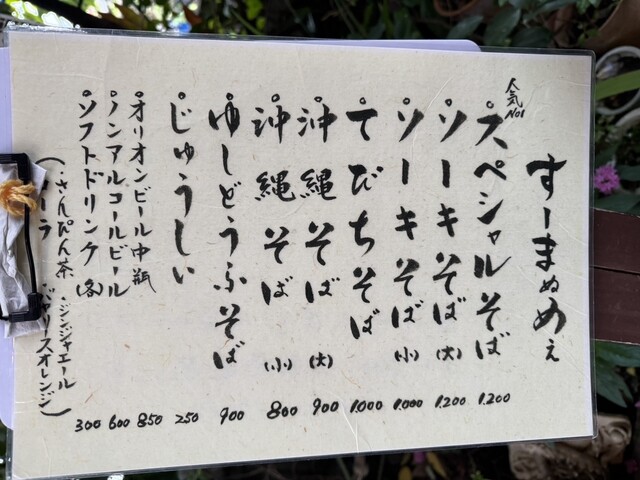 すーまぬめぇ
人気No1
スペシャルそば 1.200
ソーキそば (大) 1.200
ソーキそば (小) 1.000
てびちそば 1.000
沖縄そば (大) 900
沖縄そば (小) 800
ゆしどうふそば 900
じゅうしい 250
オリオンビール中瓶 850
ノンアルコールビール 600
ソフトドリンク (各) 300
(・さんぴん茶 ・ジンジャエール
ーラ ・バヤリスオレンジ)